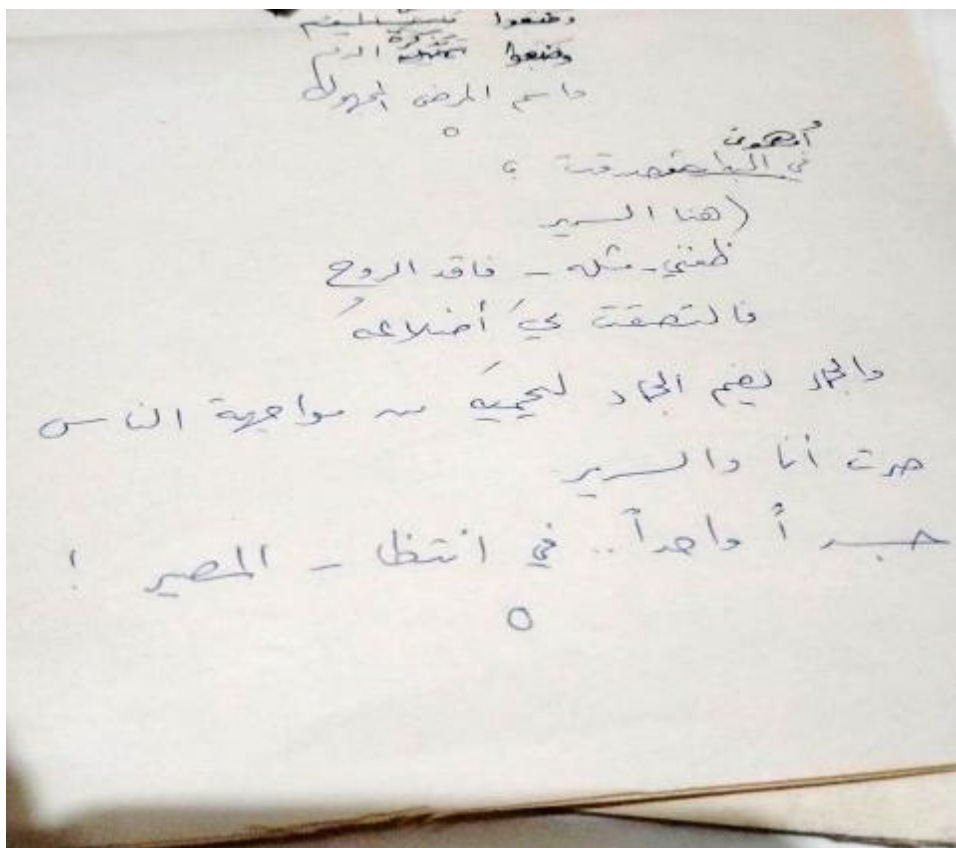 وضعوا
وضعوا تذكرة الدم
واسم المرض المجهول
أوهموني
فصدقت ؟
(هذا السرير
ظنني - مثله - فاقد الروح
فالتصقت بيَ أضلاعهُ
والجماد يضم الجماد ليحميَه من مواجهة الناس
صرت أنا والسرير
جسداً واحداً .. في انتظار المصير !